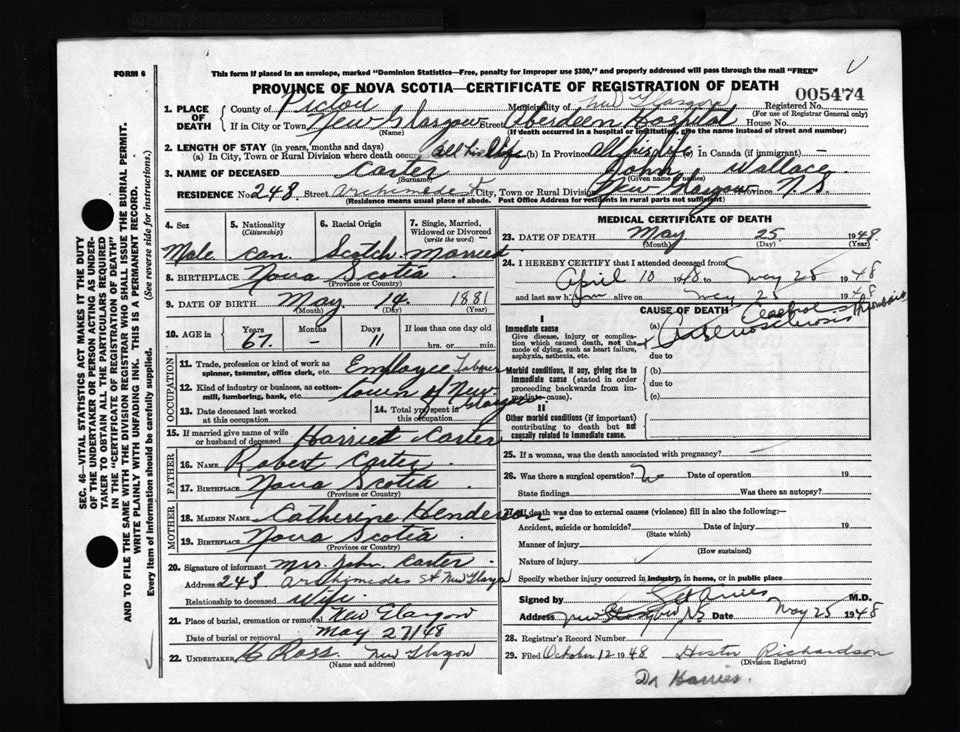 FORM 6
This form if placed in an envelope, marked "Dominion Statistics—Free, penalty for improper use $300," and properly addressed will pass through the mail "FREE"
PROVINCE OF NOVA SCOTIA—CERTIFICATE OF REGISTRATION OF DEATH
005474
1. PLACE OF DEATH
County of Pictou Municipality of New Glasgow Registered No.
(For use of Registrar General only)
If in City or Town New Glasgow Street Aberdeen Hospital House No.
(Name) (If death occurred in a hospital or institution, give the name instead of street and number)
2. LENGTH OF STAY (in years, months and days)
(a) In City, Town or Rural Division where death occurred all his life (b) In Province all his life (c) in Canada (if immigrant)—
3. NAME OF DECEASED Carter John Wallace
(Surname) (Given name or names)
RESIDENCE No 248 Street Archimedes St City, Town or Rural Division New Glasgow Province N.S
(Residence means usual place of abode. Post Office Address for residents in rural parts not sufficient)
4. Sex
Male
5. Nationality
(Citizenship)
Can.
6. Racial Origin
Scotch
7. Single, Married, Widowed or Divorced
(write the word)
Married
8. BIRTHPLACE Nova Scotia
(Province or Country)
9. DATE OF BIRTH May 14. 1881
(Month) (Day) (Year)
10. AGE in Years Months Days If less than one day old
67. — 11 hrs. or min.
OCCUPATION
11. Trade, profession or kind of work as spinner, teamster, office clerk, etc. Employee
12. Kind of industry or business, as cotton-mill, lumbering, bank, etc. town of New Glasgow
13. Date deceased last worked at this occupation
14. Total yrs. spent in this occupation
15. If married give name of wife or husband of deceased Harriet Carter
FATHER
16. NAME Robert Carter
17. BIRTHPLACE Nova Scotia
(Province or Country)
MOTHER
18. MAIDEN NAME Catherine Henderson
19. BIRTHPLACE Nova Scotia
(Province or Country)
20. Signature of informant Mrs. John Carter
Address 248 Archimedes St New Glasgow
Relationship to deceased Wife
21. Place of burial, cremation or removal New Glasgow
Date of burial or removal May 27/48
22. UNDERTAKER Ross. New Glasgow
(Name and address)
MEDICAL CERTIFICATE OF DEATH
23. DATE OF DEATH May 25 1948
(Month) (Day) (Year)
24. I HEREBY CERTIFY that I attended deceased from
April 10 1948 to May 25 1948
and last saw him alive on May 25 1948
CAUSE OF DEATH
I
Immediate cause
Give disease, injury or complication which caused death, not the mode of dying, such as heart failure, asphyxia, asthenia, etc.
(a) Cerebral Thrombosis
Arteriosclerosis
due to
Morbid conditions, if any, giving rise to immediate cause (stated in order proceeding backwards from immediate cause).
(b)
due to
(c)
II
Other morbid conditions (if important) contributing to death but not causally related to immediate cause.
25. If a woman, was the death associated with pregnancy?
26. Was there a surgical operation? No Date of operation 19
State findings Was there an autopsy?
If death was due to external causes (violence) fill in also the following:—
Accident, suicide or homicide? Date of injury 19
(State which)
Manner of injury
(How sustained)
Nature of injury
Specify whether injury occurred in industry, in home, or in public place
Signed by M.D.
Address New Glasgow NS Date May 25 1948
28. Registrar's Record Number
29. Filed October 12 1948 Hester Richardson
(Division Registrar)
Dr Harries.
SEC. 46—VITAL STATISTICS ACT MAKES IT THE DUTY
OF THE UNDERTAKER OR PERSON ACTING AS UNDER-
TAKER TO OBTAIN ALL THE PARTICULARS REQUIRED
IN THE "CERTIFICATE OF REGISTRATION OF DEATH"
AND TO FILE THE SAME WITH THE DIVISION REGISTRAR WHO SHALL ISSUE THE BURIAL PERMIT.
WRITE PLAINLY WITH UNFADING INK. THIS IS A PERMANENT RECORD.
Every item of information should be carefully supplied. (See reverse side for instructions.)